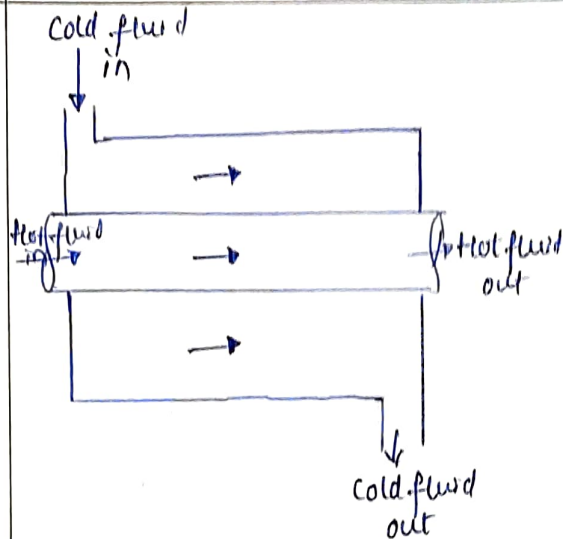 Cold fluid
in
Hot fluid
in
Hot fluid
out
Cold fluid
out